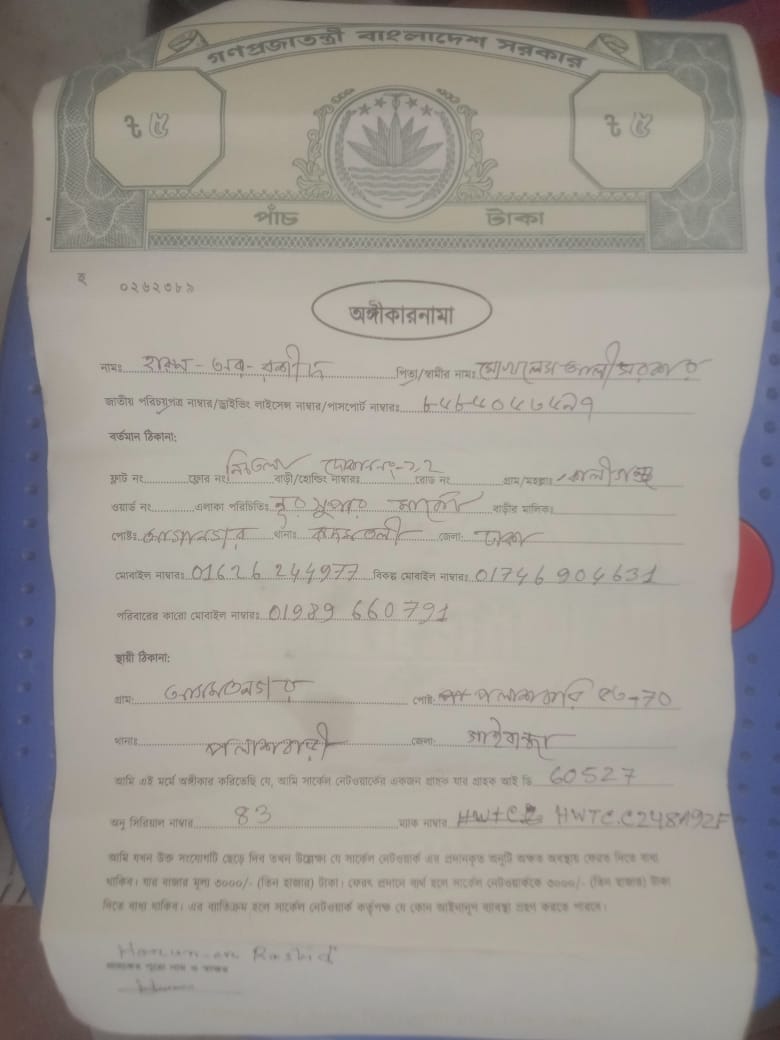 গণপ্রজাতন্ত্রী বাংলাদেশ সরকার
ট ৫ ট ৫
পাঁচ টাকা
ই ০২৬২৩৮৯
অঙ্গীকারনামা
নামঃ হারুন-অর-রশীদ পিতা/স্বামীর নামঃ মোখলেস আলী সরকার
জাতীয় পরিচয়পত্র নাম্বার/ড্রাইভিং লাইসেন্স নাম্বার/পাসপোর্ট নাম্বারঃ
বর্তমান ঠিকানা:
ফ্লাট নং ফ্লোর নং নিচতলা বাড়ী/হোল্ডিং নাম্বারঃ দোকান নং-২২ রোড নং গ্রাম/মহল্লাঃ কালীগঞ্জ
ওয়ার্ড নং এলাকা পরিচিতিঃ নূর সুপার মার্কেট বাড়ীর মালিকঃ
পোষ্টঃ থানাঃ জেলা: ঢাকা
মোবাইল নাম্বারঃ 01626 244977 বিকল্প মোবাইল নাম্বারঃ 01746 904631
পরিবারের কারো মোবাইল নাম্বারঃ 01989 660791
স্থায়ী ঠিকানা:
গ্রাম: পোষ্ট: পলাশবাড়ি
থানাঃ পলাশবাড়ী জেলা: গাইবান্ধা
আমি এই মর্মে অঙ্গীকার করিতেছি যে, আমি সার্কেল নেটওয়ার্কের একজন গ্রাহক যার গ্রাহক আই ডি 60527
অনু সিরিয়াল নাম্বার 83 ম্যাক নাম্বার HWTC.C248A92F
আমি যখন উক্ত সংযোগটি ছেড়ে দিব তখন উল্লেখ্য যে সার্কেল নেটওয়ার্ক এর প্রদানকৃত অনুটি অক্ষত অবস্থায় ফেরত দিতে বাধ্য
থাকিব। যার বাজার মূল্য ৩০০০/- (তিন হাজার) টাকা। ফেরৎ প্রদানে ব্যর্থ হলে সার্কেল নেটওয়ার্ককে ৩০০০/- (তিন হাজার) টাকা
দিতে বাধ্য থাকিব। এর ব্যতিক্রম হলে সার্কেল নেটওয়ার্ক কর্তৃপক্ষ যে কোন আইনানুগ ব্যবস্থা গ্রহণ করতে পারবে।
Harun-or Rashid
গ্রাহকের পুরো নাম ও স্বাক্ষর